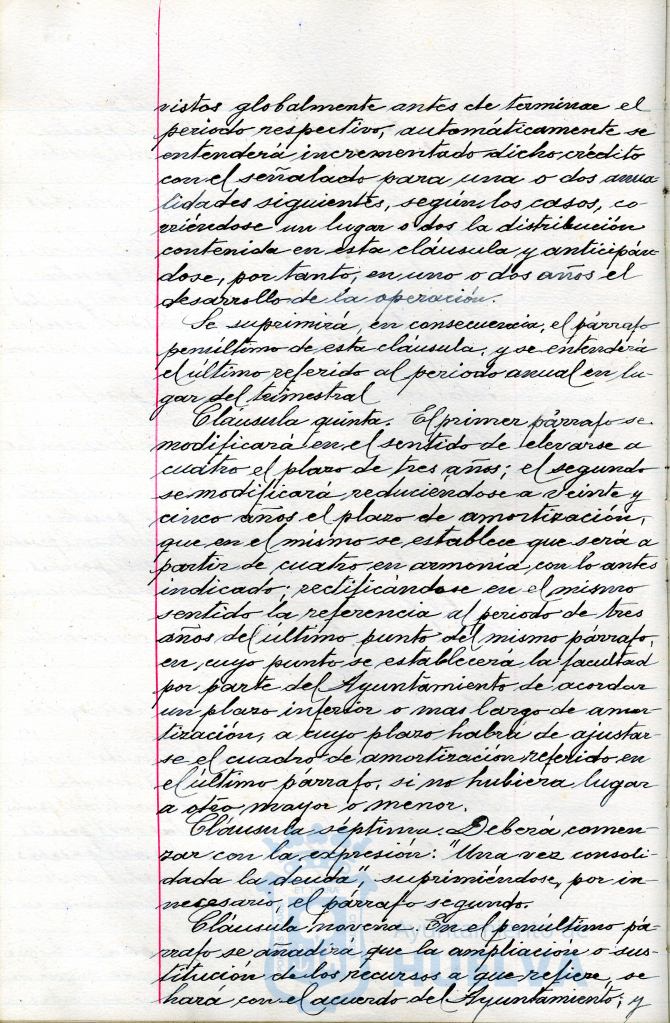 vistos globalmente antes de terminar el
periodo respectivo, automáticamente se
entenderá incrementado dicho crédito
con el señalado para una o dos anua-
lidades siguientes, según los casos, co-
rriéndose un lugar o dos la distribución
contenida en esta cláusula y anticipán-
dose, por tanto, en uno o dos años el
desarrollo de la operación.
Se suprimirá, en consecuencia, el párrafo
penúltimo de esta cláusula, y se entenderá
el último referido al periodo anual en lu-
gar del trimestral
Cláusula quinta. El primer párrafo se
modificará en el sentido de elevarse a
cuatro el plazo de tres años; el segundo
se modificará reduciéndose a veinte y
cinco años el plazo de amortización,
que en el mismo se establece que será a
partir de cuatro en armonía con lo antes
indicado; rectificándose en el mismo
sentido la referencia al periodo de tres
años del último punto del mismo párrafo,
en cuyo punto se establecerá la facultad
por parte del Ayuntamiento de acordar
un plazo inferior o mas largo de amor-
tización, a cuyo plazo habra de ajustar-
se el cuadro de amortización referido en
el último párrafo, si no hubiera lugar
a otro mayor o menor.
Cláusula séptima. Deberá comen-
zar con la expresión: "Una vez consoli-
dada la deuda", suprimiéndose, por in-
necesario, el párrafo segundo.
Cláusula novena. En el penúltimo pá-
rrafo se añadirá que la ampliación o sus-
titución de los recursos a que refiere, se
hará con el acuerdo del Ayuntamiento; y
Ayuntamiento de
HUELVA